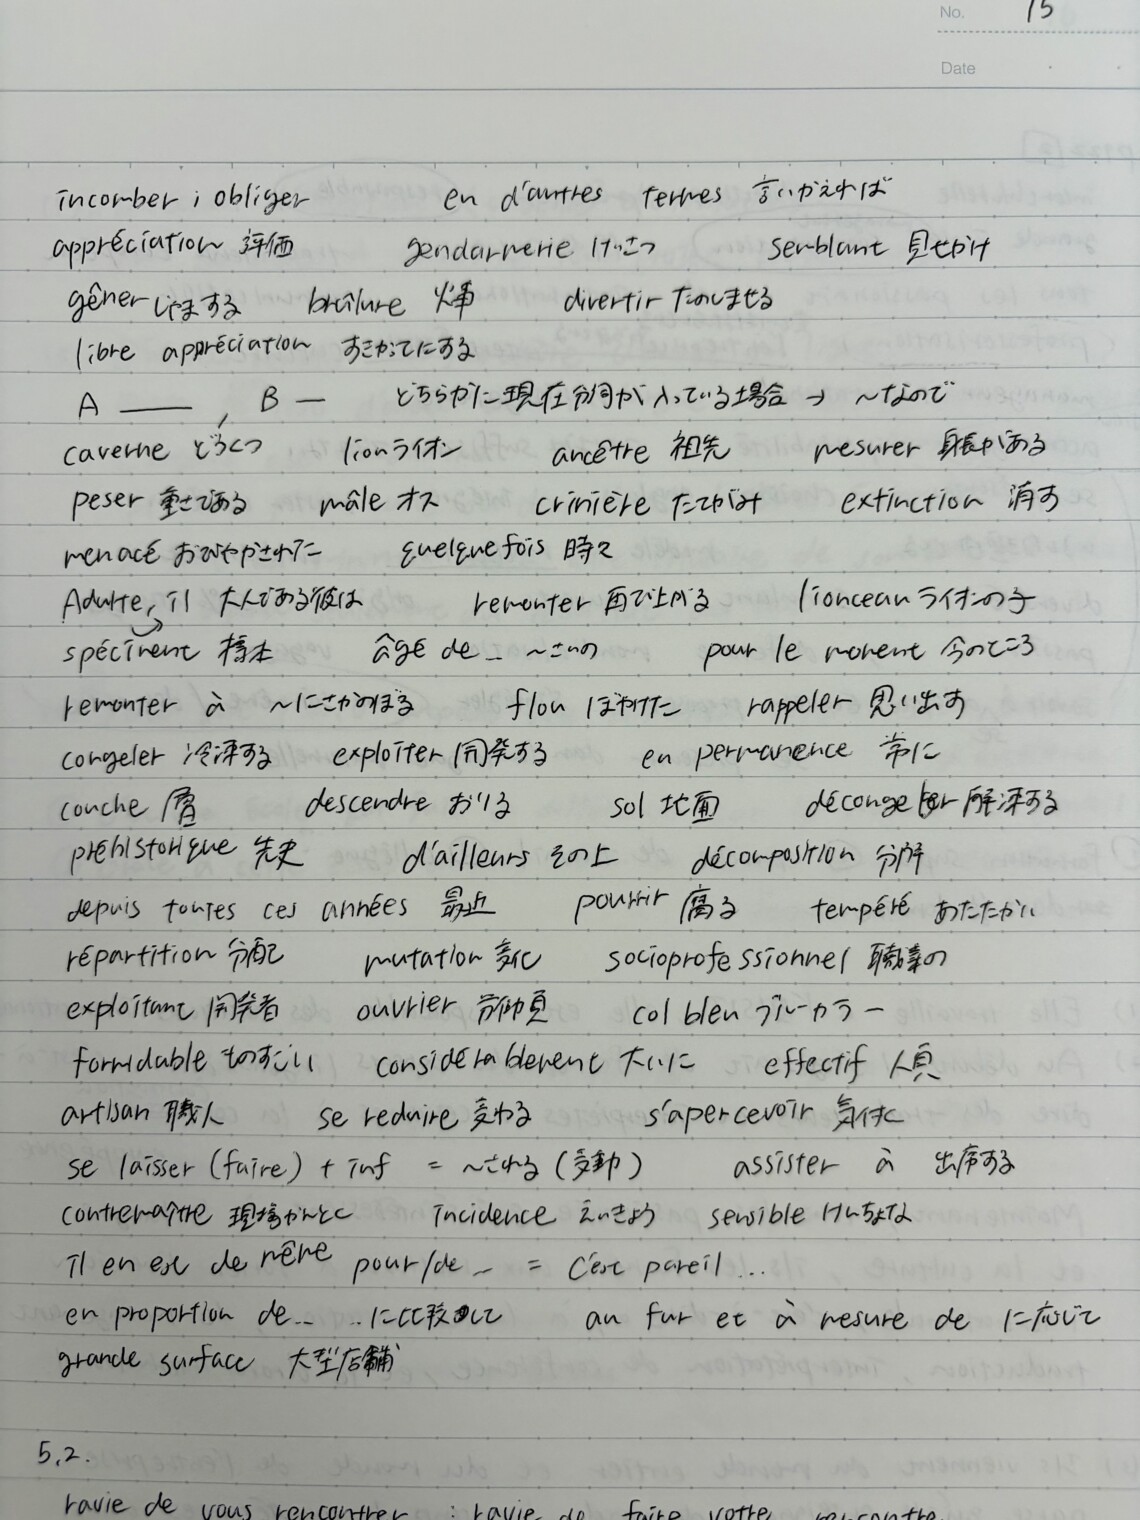 No. 15
Date
incomber ; obliger en d'autres termes 言いかえれば
appréciation 評価 gendarmerie けいさつ semblant 見せかけ
gêner じゃまする brûlure divertir たのしませる
libre appréciation すきかってにする
A ―― , B ― どちらかに現在分詞が入っている場合 → ~なので
caverne どうくつ lion ライオン ancêtre 祖先 mesurer 身長がある
peser 重さである mâle オス crinière たてがみ extinction 消す
menacé おびやかされた quelquefois 時々
Adulte, il 大人である彼は remonter 再び上がる lionceau ライオンの子
spéciment 標本 âgé de… ~さいの pour le moment 今のところ
remonter à ~にさかのぼる flou ぼやけた rappeler 思い出す
congeler 冷凍する exploiter 開発する en permanence 常に
couche 層 descendre おりる sol 地面 décongeler 解凍する
préhistorique 先史 d'ailleurs その上 décomposition 分解
depuis toutes ces années 最近 pourrir 腐る tempéré あたたかい
répartition 分配 mutation 変化 socioprofessionnel 職業の
exploitant 開発者 ouvrier 労働員 col bleu ブルーカラー
formidable ものすごい considérablement 大いに effectif 人員
artisan 職人 se reduire 変わる s'apercevoir 気付く
se laisser (faire) + inf = ~される (受動) assister à 出席する
contremaître 現場かんとく incidence えいきょう sensible けんちょな
il en est de même pour/de … = C'est pareil...
en proportion de… ..に比較して au fur et à mesure de に応じて
grande surface 大型店舗
5.2.
ravie de vous rencontrer : ravie de faire votre rencontre